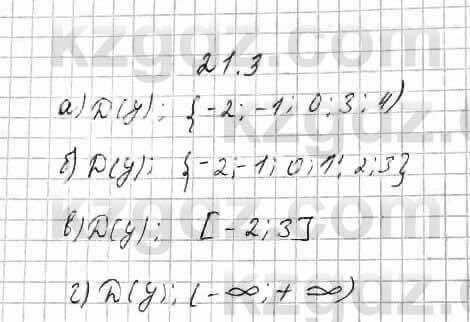 21.3
а) D(y); {-2; -1; 0; 3; 4)
б) D(y); {-2; -1; 0; 1; 2; 3}
в) D(y); [-2; 3]
г) D(y); (-∞; +∞)
kzgdz.com